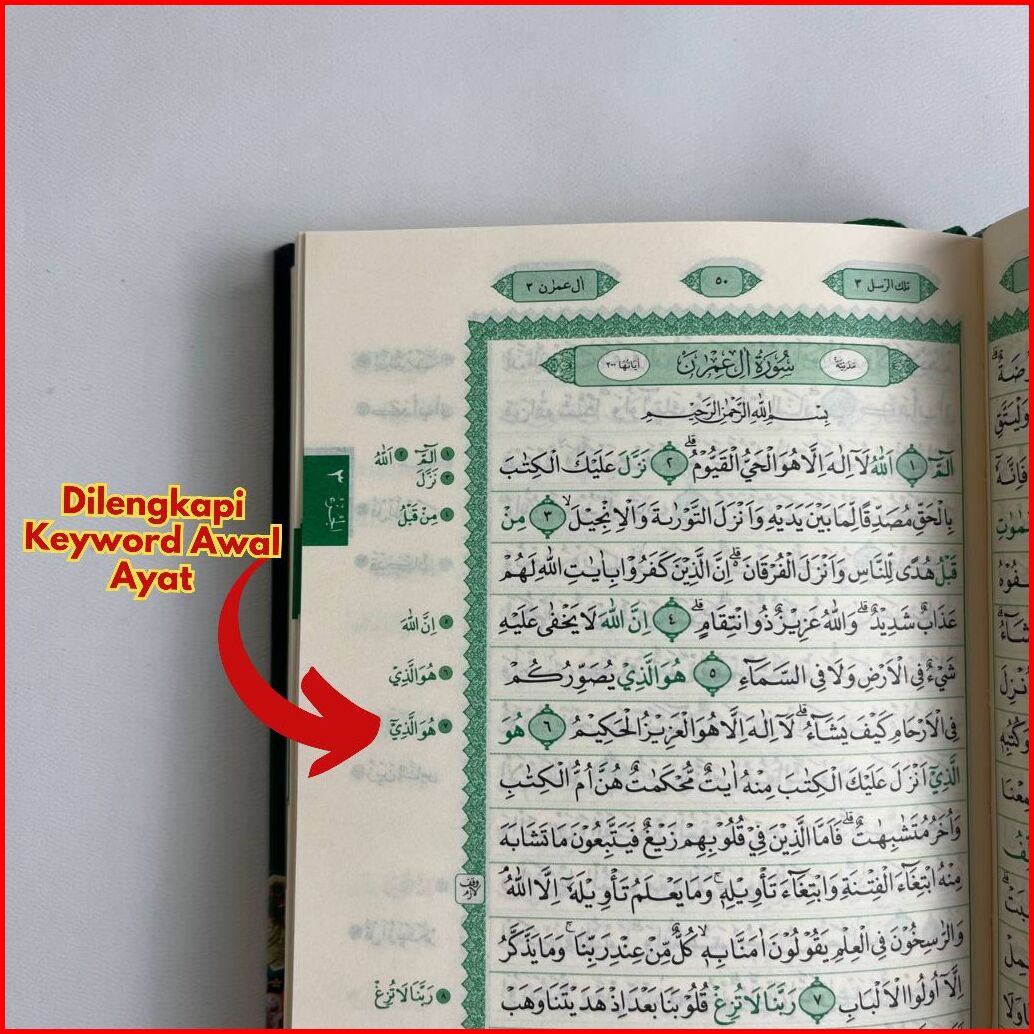 تلك الرسل ٣
٥٠
اٰل عمرٰن ٣
مدنية
سُوْرَةُ اٰلِ عِمْرٰنَ
اٰيَاتُهَا ٢٠٠
بِسْمِ اللّٰهِ الرَّحْمٰنِ الرَّحِيْمِ
الۤمّۤ ۝١ اَللّٰهُ لَآ اِلٰهَ اِلَّا هُوَ الْحَيُّ الْقَيُّوْمُۗ ۝٢ نَزَّلَ عَلَيْكَ الْكِتٰبَ
بِالْحَقِّ مُصَدِّقًا لِّمَا بَيْنَ يَدَيْهِ وَاَنْزَلَ التَّوْرٰىةَ وَالْاِنْجِيْلَۙ ۝٣ مِنْ
قَبْلُ هُدًى لِّلنَّاسِ وَاَنْزَلَ الْفُرْقَانَۗ اِنَّ الَّذِيْنَ كَفَرُوْا بِاٰيٰتِ اللّٰهِ لَهُمْ
عَذَابٌ شَدِيْدٌۗ وَاللّٰهُ عَزِيْزٌ ذُو انْتِقَامٍۗ ۝٤ اِنَّ اللّٰهَ لَا يَخْفٰى عَلَيْهِ
شَيْءٌ فِى الْاَرْضِ وَلَا فِى السَّمَاۤءِ ۝٥ هُوَ الَّذِيْ يُصَوِّرُكُمْ
فِى الْاَرْحَامِ كَيْفَ يَشَاۤءُۗ لَآ اِلٰهَ اِلَّا هُوَ الْعَزِيْزُ الْحَكِيْمُ ۝٦ هُوَ
الَّذِيْٓ اَنْزَلَ عَلَيْكَ الْكِتٰبَ مِنْهُ اٰيٰتٌ مُّحْكَمٰتٌ هُنَّ اُمُّ الْكِتٰبِ
وَاُخَرُ مُتَشٰبِهٰتٌۗ فَاَمَّا الَّذِيْنَ فِيْ قُلُوْبِهِمْ زَيْغٌ فَيَتَّبِعُوْنَ مَا تَشَابَهَ
مِنْهُ ابْتِغَاۤءَ الْفِتْنَةِ وَابْتِغَاۤءَ تَأْوِيْلِهٖۚ وَمَا يَعْلَمُ تَأْوِيْلَهٗٓ اِلَّا اللّٰهُ
وَالرّٰسِخُوْنَ فِى الْعِلْمِ يَقُوْلُوْنَ اٰمَنَّا بِهٖۙ كُلٌّ مِّنْ عِنْدِ رَبِّنَاۚ وَمَا يَذَّكَّرُ
اِلَّآ اُولُوا الْاَلْبَابِ ۝٧ رَبَّنَا لَا تُزِغْ قُلُوْبَنَا بَعْدَ اِذْ هَدَيْتَنَا وَهَبْ
١ الۤمّۤ ٢ اَللّٰهُ
٣ نَزَّلَ
٤ مِنْ قَبْلُ
٥ اِنَّ اللّٰهَ
٦ هُوَ الَّذِيْ
٧ هُوَ الَّذِيْٓ
٨ رَبَّنَا لَا تُزِغْ
وقف
لازم
٣
الجزء
Dilengkapi
Keyword Awal
Ayat